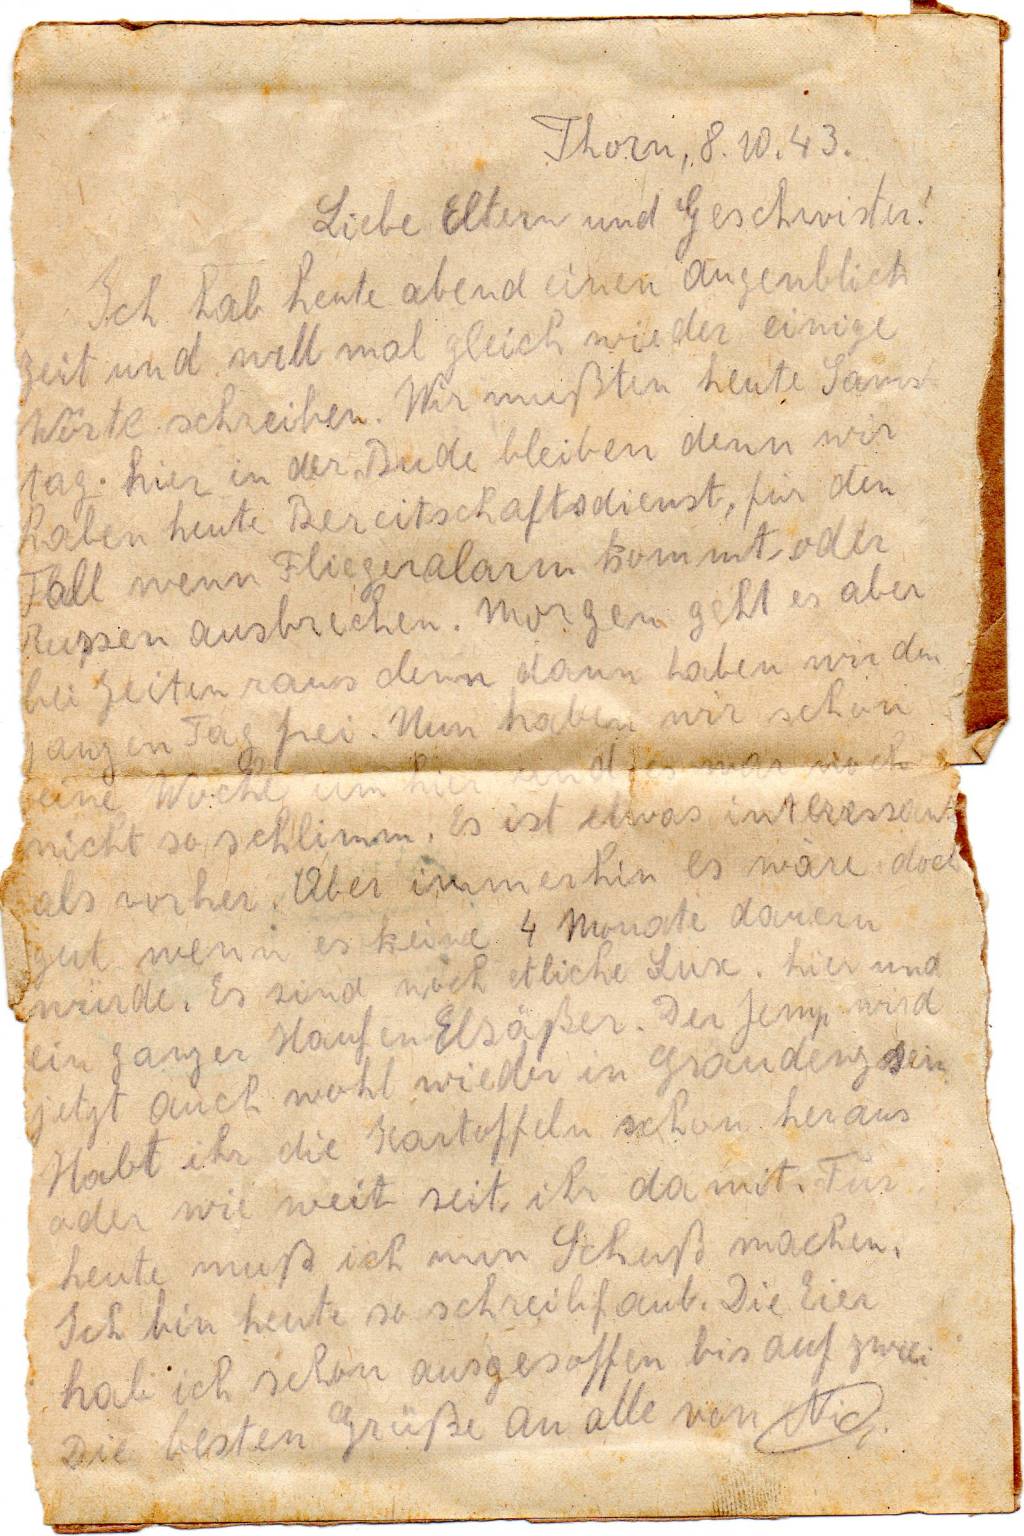 Thorn, 8.10.43.
Liebe Eltern und Geschwister!
Ich hab heute abend einen augenblick
zeit und will mal gleich wieder einige
Wörte schreiben. Wir mußten heute Sams-
tag. hier in der Bude bleiben denn wir
haben heute Bereitschaftsdienst, für den
Fall wenn Fliegeralarm kommt oder
Russen ausbrechen. Morgen geht es aber
bei zeiten raus denn dann haben wir den
ganzen Tag frei. Nun haben wir schon
eine Woche um hier und es war noch
nicht so schlimm. Es ist etwas interessant
als vorher. Aber immerhin es wäre doch
gut wenn es keine 4 Monate dauern
würde. Es sind noch etliche Lux. hier und
ein ganzer Haufen Elsäßer. Der Jemp wird
jetzt auch wohl wieder in Graudenz sein
Habt ihr die Kartoffeln schon heraus
oder wie weit seit ihr damit. Für
heute muß ich nun Schuß machen.
Ich bin heute so schreibfaul. Die Eier
hab ich schon ausgesoffen bis auf zwei
Die besten Grüße an alle von Nic.